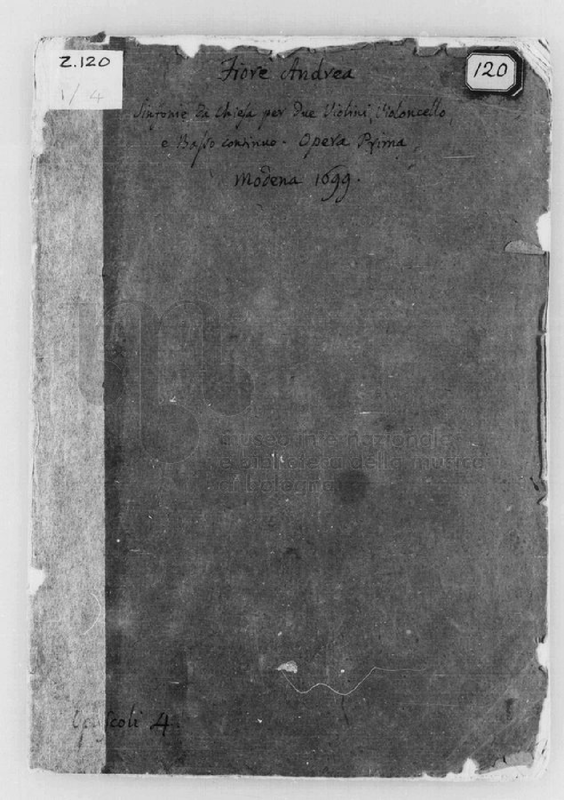 Z.120
1/4
120
Fiore Andrea
Sinfonie da Chiesa per due Violini, Violoncello,
e Basso continuo. Opera Prima
Modena 1699.
museo internazionale
e biblioteca della musica
di bologna
Opuscoli 4.